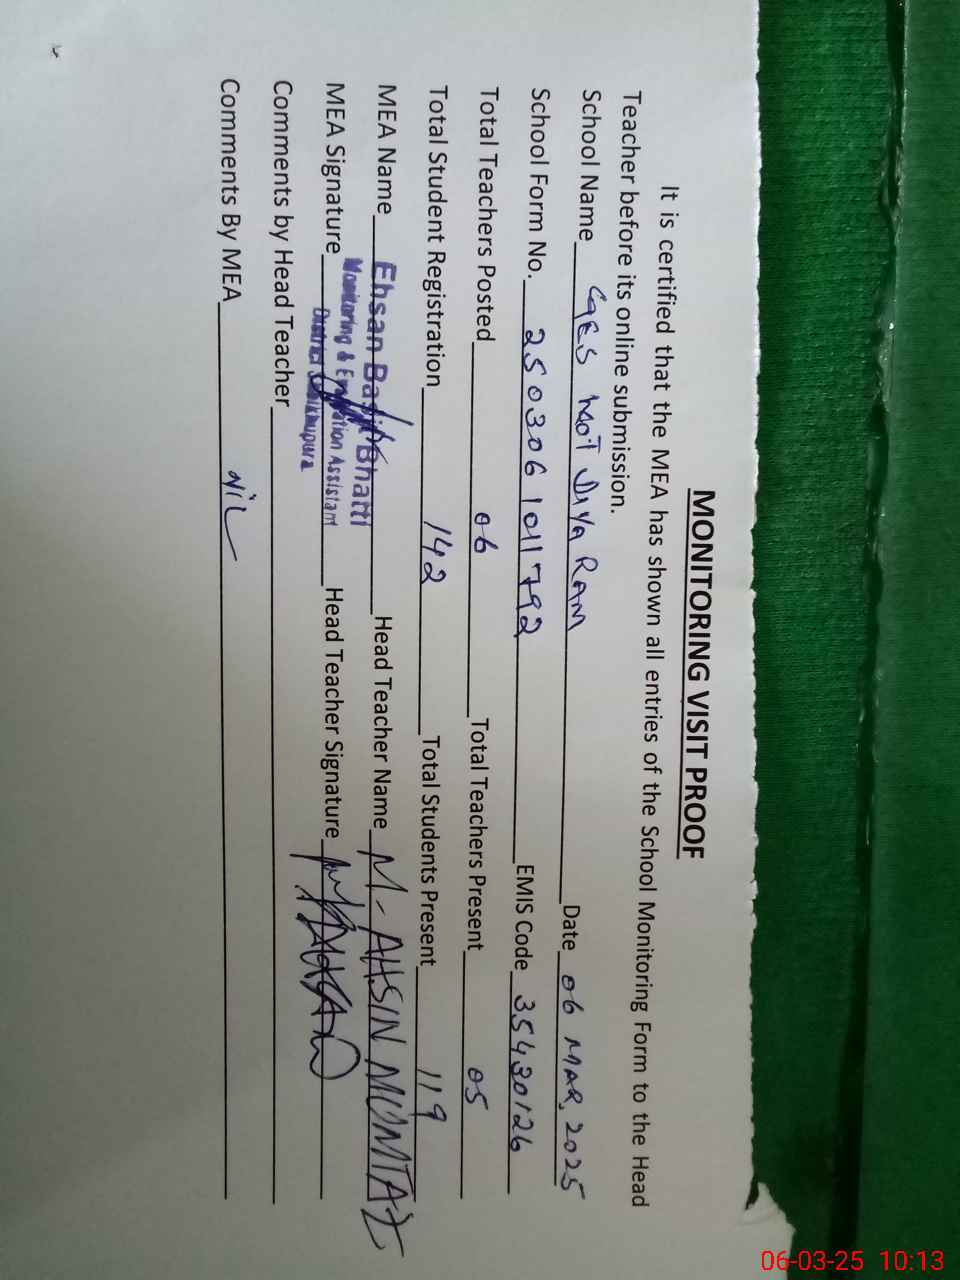 MONITORING VISIT PROOF
It is certified that the MEA has shown all entries of the School Monitoring Form to the Head
Teacher before its online submission.
School Name GES MOT DIYA RAM Date 06 MAR, 2025
School Form No. 2503061011792 EMIS Code 35430126
Total Teachers Posted 06 Total Teachers Present 05
Total Student Registration 142 Total Students Present 119
MEA Name Ehsan Bhatti Head Teacher Name M-AHSIN MUMTAZ
MEA Signature Monitoring & Evaluation Assistant Head Teacher Signature
District Sheikhupura
Comments by Head Teacher
Comments By MEA Nil
06-03-25 10:13